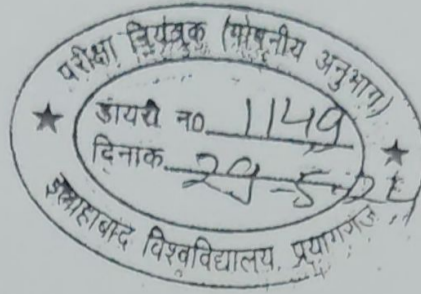 परीक्षा नियंत्रक (गोपनीय अनुभाग)
डायरी न0 1149
दिनाक 29-5-24
इलाहाबाद विश्वविद्यालय, प्रयागराज